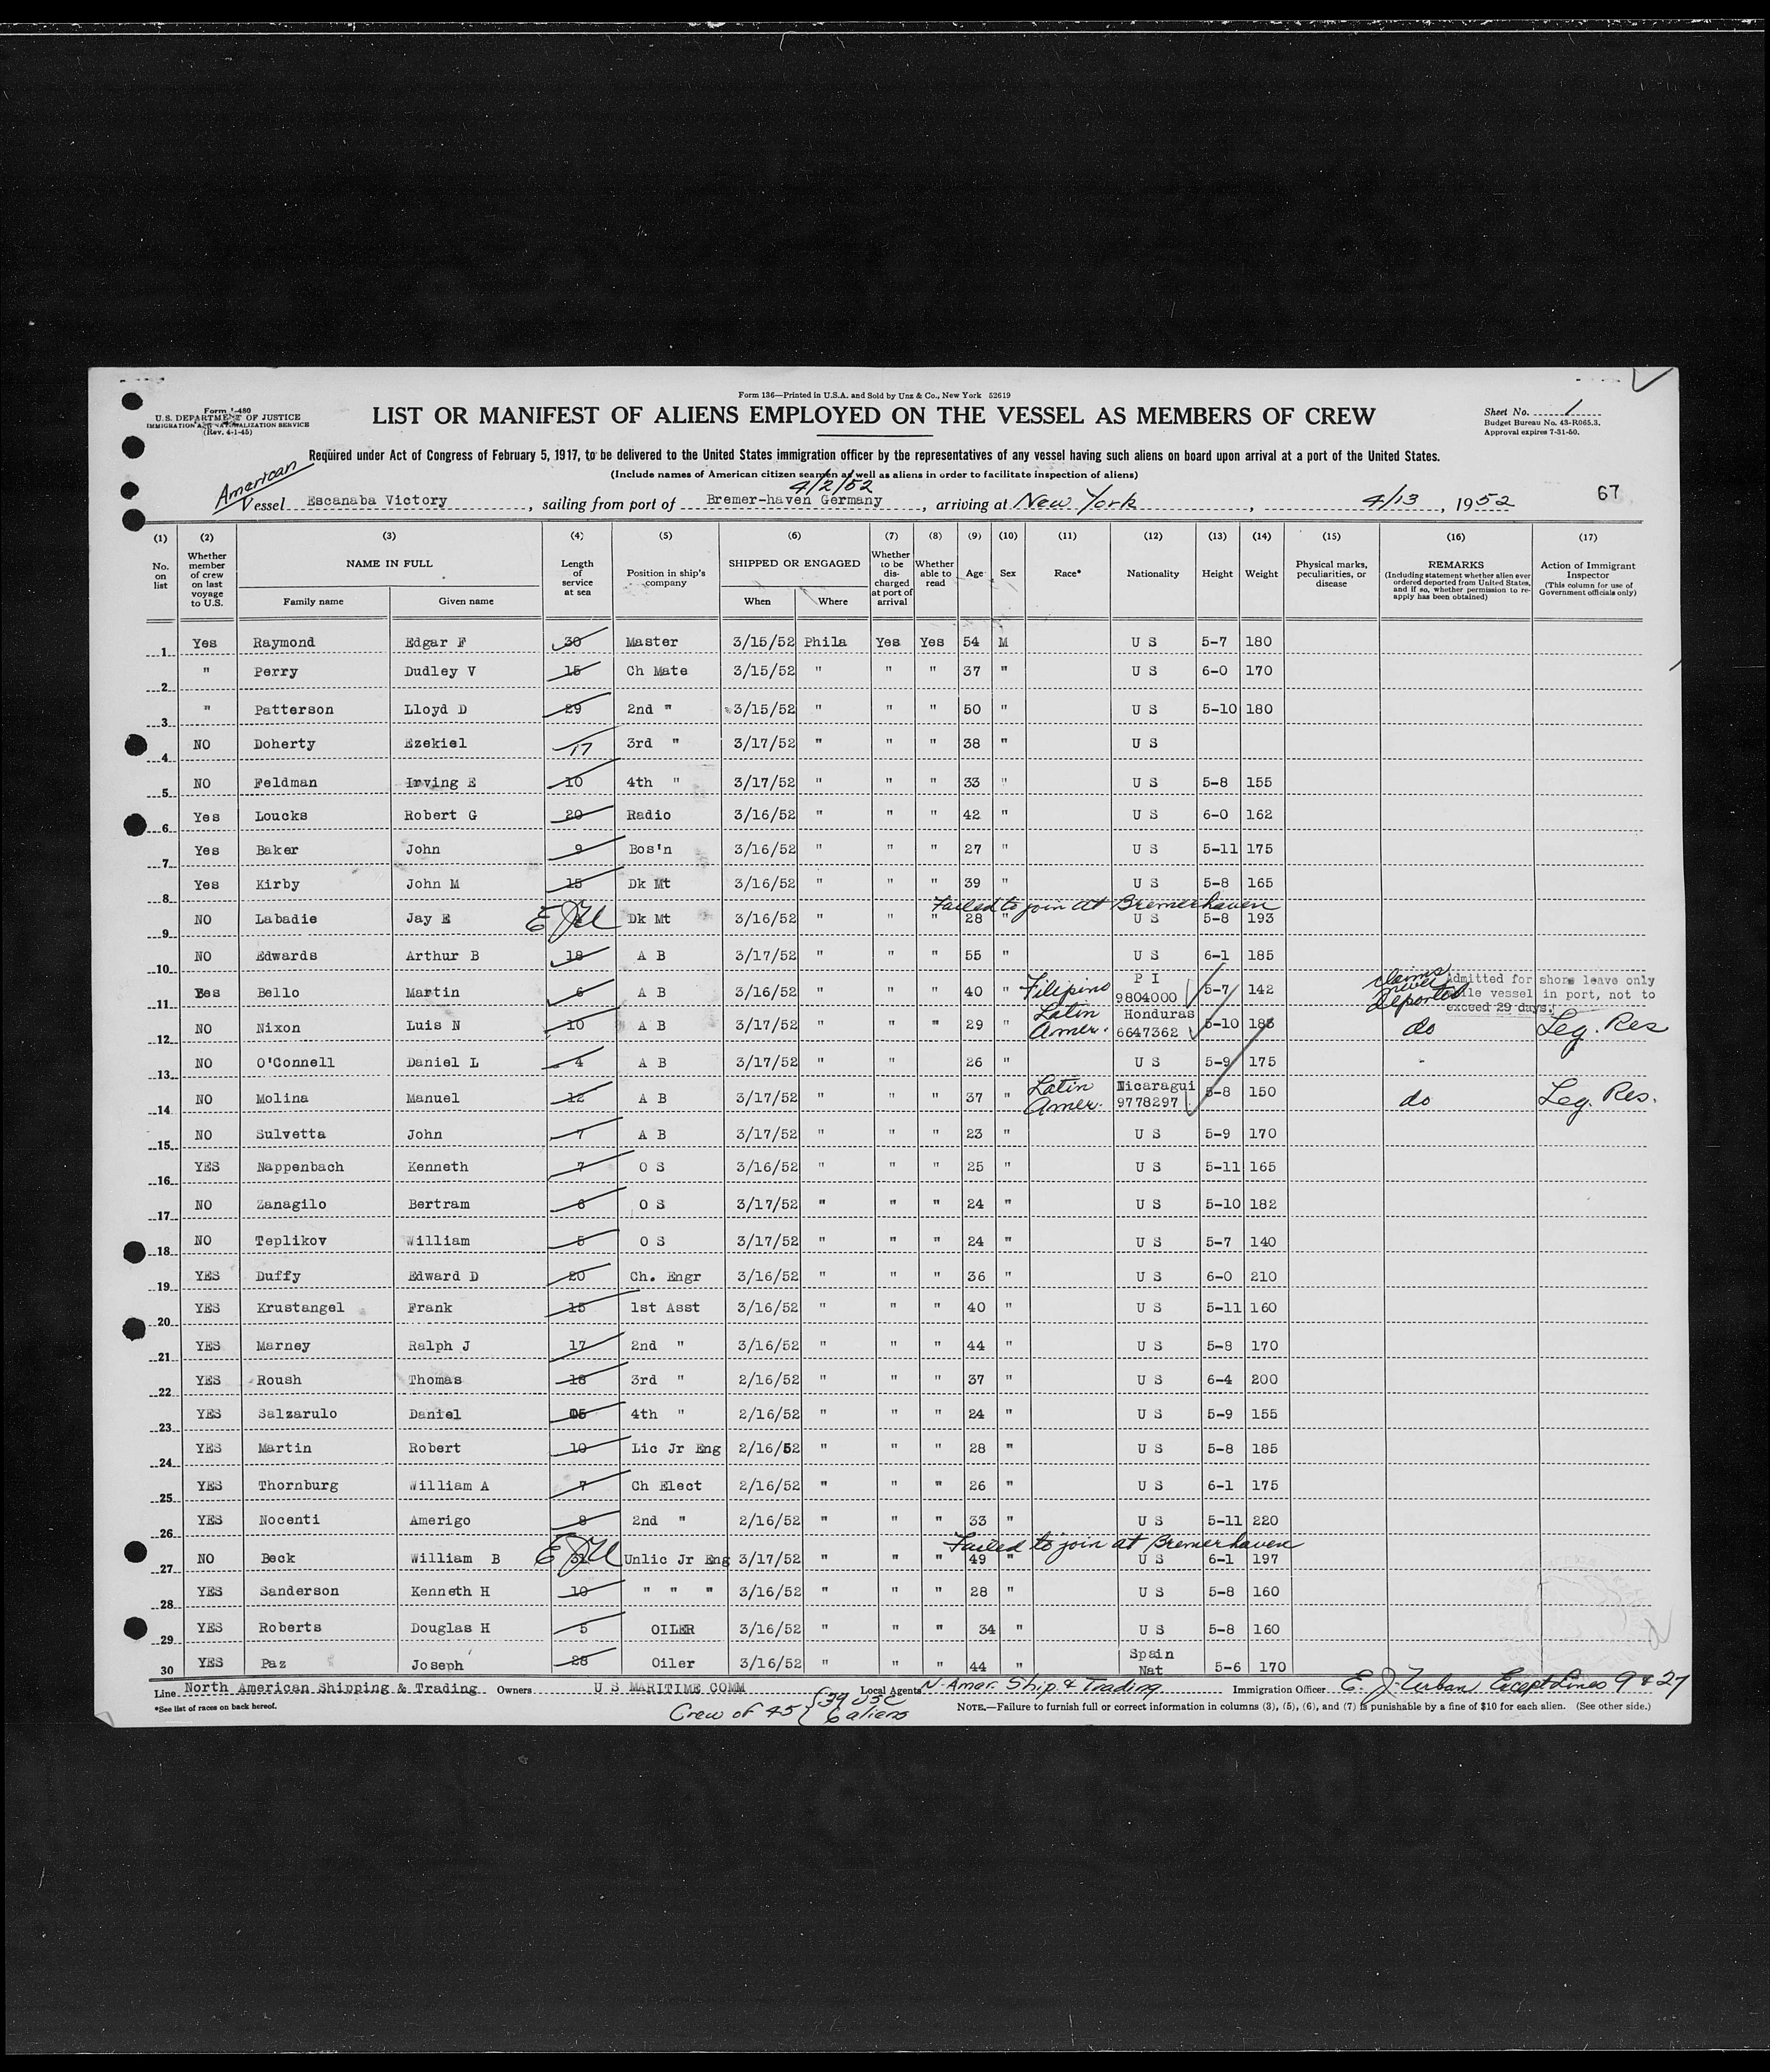 Form 136—Printed in U.S.A. and Sold by Unz & Co., New York 52619
Form I-480
U.S. DEPARTMENT OF JUSTICE
IMMIGRATION AND NATURALIZATION SERVICE
(Rev. 4-1-45)
LIST OR MANIFEST OF ALIENS EMPLOYED ON THE VESSEL AS MEMBERS OF CREW
Sheet No. 1
Budget Bureau No. 43-R065.3.
Approval expires 7-31-50.
Required under Act of Congress of February 5, 1917, to be delivered to the United States immigration officer by the representatives of any vessel having such aliens on board upon arrival at a port of the United States.
(Include names of American citizen seamen as well as aliens in order to facilitate inspection of aliens)
American 4/2/52
Vessel Escanaba Victory , sailing from port of Bremer-haven Germany , arriving at New York , 4/13 , 1952 67
(1) (2) (3) (4) (5) (6) (7) (8) (9) (10) (11) (12) (13) (14) (15) (16) (17)
No. on list
Whether member of crew on last voyage to U.S.
NAME IN FULL
Family name Given name
Length of service at sea
Position in ship's company
SHIPPED OR ENGAGED
When Where
Whether to be discharged at port of arrival
Whether able to read
Age
Sex
Race*
Nationality
Height
Weight
Physical marks, peculiarities, or disease
REMARKS
(Including statement whether alien ever ordered deported from United States, and if so, whether permission to reapply has been obtained)
Action of Immigrant Inspector
(This column for use of Government officials only)
1 Yes Raymond Edgar F 30 Master 3/15/52 Phila Yes Yes 54 M U S 5-7 180
2 " Perry Dudley V 15 Ch Mate 3/15/52 " " " 37 " U S 6-0 170
3 " Patterson Lloyd D 29 2nd " 3/15/52 " " " 50 " U S 5-10 180
4 NO Doherty Ezekiel 17 3rd " 3/17/52 " " " 38 " U S
5 NO Feldman Irving E 10 4th " 3/17/52 " " " 33 " U S 5-8 155
6 Yes Loucks Robert G 20 Radio 3/16/52 " " " 42 " U S 6-0 162
7 Yes Baker John 9 Bos'n 3/16/52 " " " 27 " U S 5-11 175
8 Yes Kirby John M 15 Dk Mt 3/16/52 " " " 39 " U S 5-8 165
Failed to join at Bremerhaven
9 NO Labadie Jay E EJU Dk Mt 3/16/52 " " " 28 " U S 5-8 193
10 NO Edwards Arthur B 18 A B 3/17/52 " " " 55 " U S 6-1 185
11 Yes Bello Martin 6 A B 3/16/52 " " " 40 " Filipino P I 9804000 5-7 142 claims never deported Admitted for shore leave only while vessel in port, not to exceed 29 days.
12 NO Nixon Luis N 10 A B 3/17/52 " " " 29 " Latin Amer. Honduras 6647362 5-10 185 do Leg. Res
13 NO O'Connell Daniel L 4 A B 3/17/52 " " " 26 " U S 5-9 175 -
14 NO Molina Manuel 12 A B 3/17/52 " " " 37 " Latin Amer. Nicaragui 9778297 5-8 150 do Leg. Res.
15 NO Sulvetta John 7 A B 3/17/52 " " " 23 " U S 5-9 170
16 YES Nappenbach Kenneth 7 O S 3/16/52 " " " 25 " U S 5-11 165
17 NO Zanagilo Bertram 6 O S 3/17/52 " " " 24 " U S 5-10 182
18 NO Teplikov William 5 O S 3/17/52 " " " 24 " U S 5-7 140
19 YES Duffy Edward D 20 Ch. Engr 3/16/52 " " " 36 " U S 6-0 210
20 YES Krustangel Frank 15 1st Asst 3/16/52 " " " 40 " U S 5-11 160
21 YES Marney Ralph J 17 2nd " 3/16/52 " " " 44 " U S 5-8 170
22 YES Roush Thomas 18 3rd " 2/16/52 " " " 37 " U S 6-4 200
23 YES Salzarulo Daniel 05 4th " 2/16/52 " " " 24 " U S 5-9 155
24 YES Martin Robert 10 Lic Jr Eng 2/16/52 " " " 28 " U S 5-8 185
25 YES Thornburg William A 7 Ch Elect 2/16/52 " " " 26 " U S 6-1 175
26 YES Nocenti Amerigo 8 2nd " 2/16/52 " " " 33 " U S 5-11 220
Failed to join at Bremerhaven
27 NO Beck William B EJU Unlic Jr Eng 3/17/52 " " " 49 " U S 6-1 197
28 YES Sanderson Kenneth H 10 " " " 3/16/52 " " " 28 " U S 5-8 160
29 YES Roberts Douglas H 5 OILER 3/16/52 " " " 34 " U S 5-8 160
30 YES Paz Joseph 28 Oiler 3/16/52 " " " 44 " Spain Nat 5-6 170
Line North American Shipping & Trading Owners U S MARITIME COMM Local Agents N. Amer. Ship. & Trading Immigration Officer E. J. Urban Except Lines 9 & 27
*See list of races on back hereof.
Crew of 45 { 39 USC 6 aliens
NOTE.—Failure to furnish full or correct information in columns (3), (5), (6), and (7) is punishable by a fine of $10 for each alien. (See other side.)